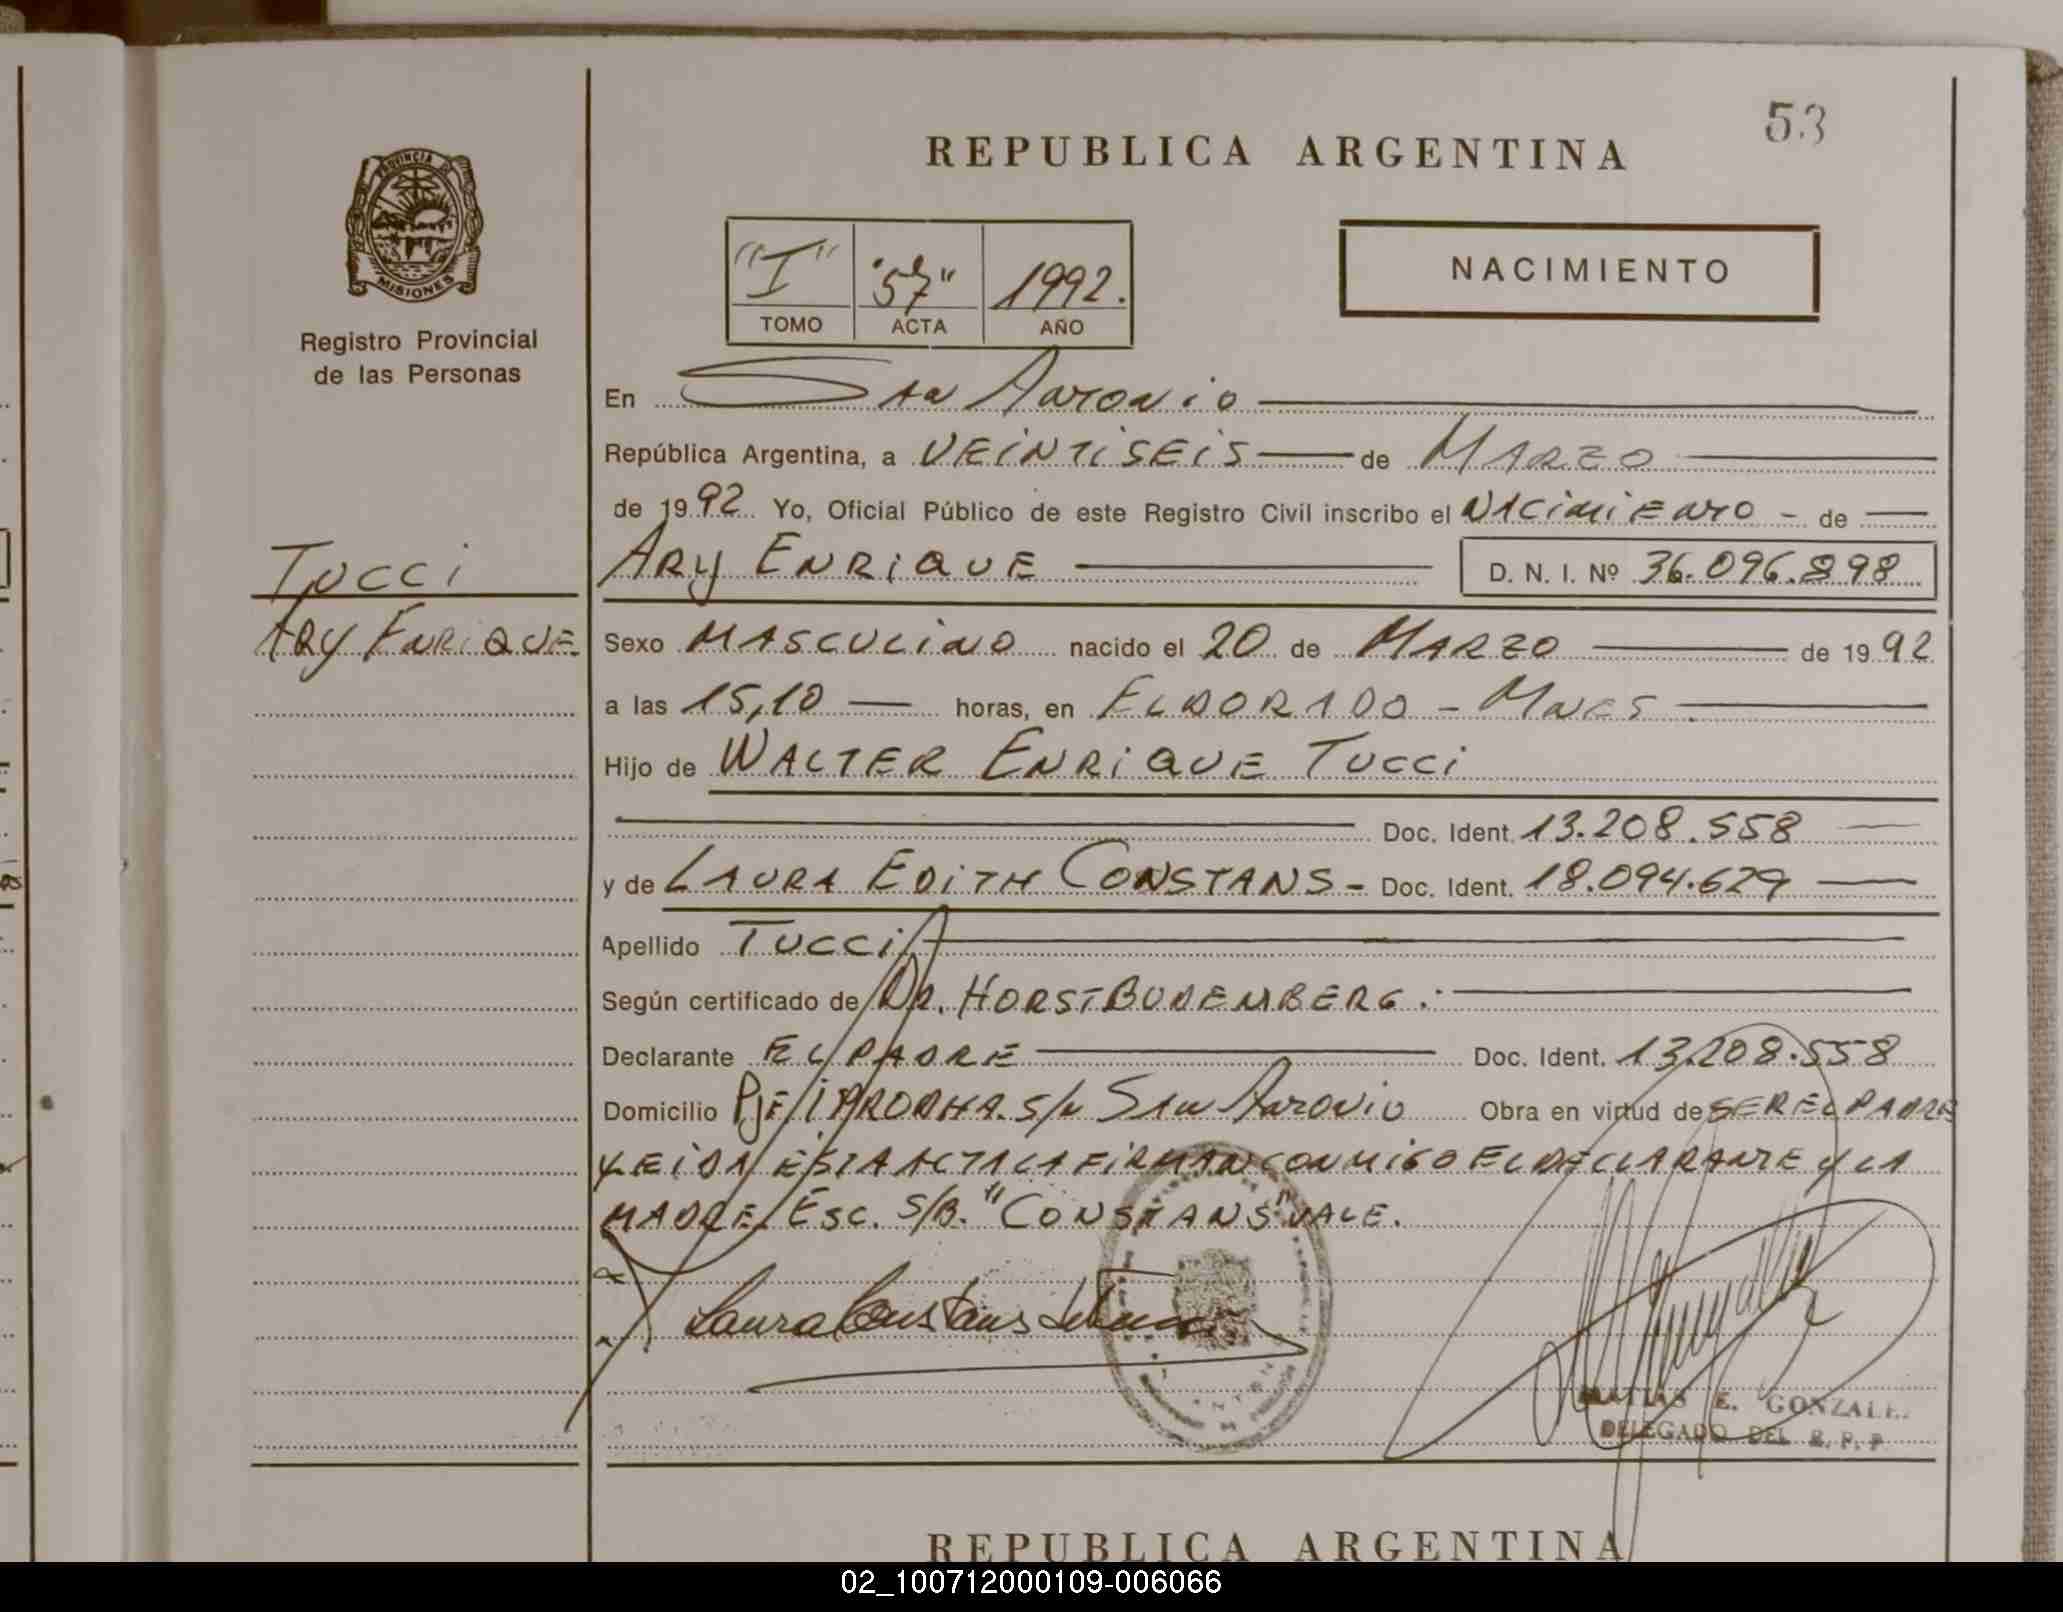 53
REPUBLICA ARGENTINA
PROVINCIA DE
MISIONES
Registro Provincial
de las Personas
"I" "57" 1992.
TOMO ACTA AÑO
NACIMIENTO
En San Antonio
República Argentina, a VEINTISEIS de MARZO
de 1992 Yo, Oficial Público de este Registro Civil inscribo el NACIMIENTO - de
TUCCI
ARY ENRIQUE
ARY ENRIQUE D. N. I. Nº 36.096.898
Sexo MASCULINO nacido el 20 de MARZO de 1992
a las 15,10 horas, en ELDORADO - MNES
Hijo de WALTER ENRIQUE TUCCI
Doc. Ident. 13.208.558
y de LAURA EDITH CONSTANS - Doc. Ident. 18.094.629
Apellido TUCCI
Según certificado de DR. HORST BUDEMBERG.
Declarante EL PADRE Doc. Ident. 13.208.558
Domicilio PJE S/N San Antonio Obra en virtud de SER EL PADRE
LEIDA ESTA ACTA LA FIRMAN CONMIGO EL DECLARANTE Y LA
MADRE. Esc. S/B. "CONSTANS" VALE.
Laura Constans de
MATIAS E. GONZALE
DELEGADO DEL R. P. P
REPUBLICA ARGENTINA
02_100712000109-006066